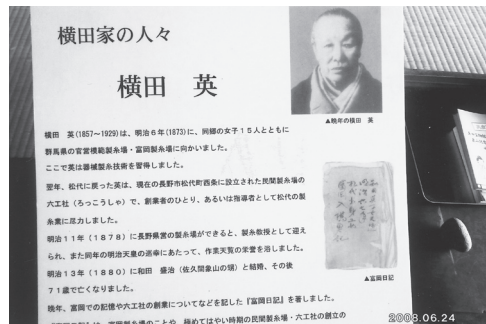 横田家の人々
横田 英
▲晩年の横田 英
横田 英(1857~1929)は、明治6年(1873)に、同郷の女子15人とともに
群馬県の官営模範製糸場・富岡製糸場に向かいました。
ここで英は器械製糸技術を習得しました。
翌年、松代に戻った英は、現在の長野市松代町西条に設立された民間製糸場の
六工社(ろっこうしゃ)で、創業者のひとり、あるいは指導者として松代の製
糸業に尽力しました。
明治11年(1878)に長野県営の製糸場ができると、製糸教授として迎え
られ、また同年の明治天皇の巡幸にあたって、作業天覧の栄誉を浴しました。
明治13年(1880)に和田 盛治(佐久間象山の甥)と結婚、その後
71歳で亡くなりました。
▲富岡日記
晩年、富岡での記憶や六工社の創業についてなどを記した『富岡日記』を著しました。
『富岡日記』は、富岡製糸場のことや、極めてはやい時期の民間製糸場・六工社の創立の
2008.06.24